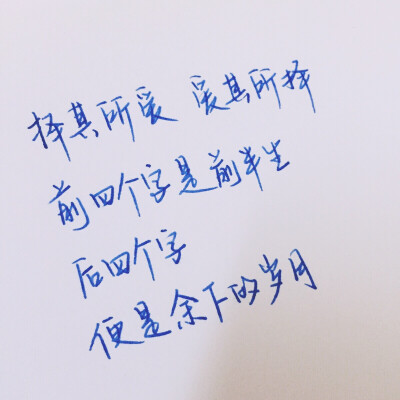 择其所爱 爱其所择
前四个字是前半生
后四个字
便是余下的岁月